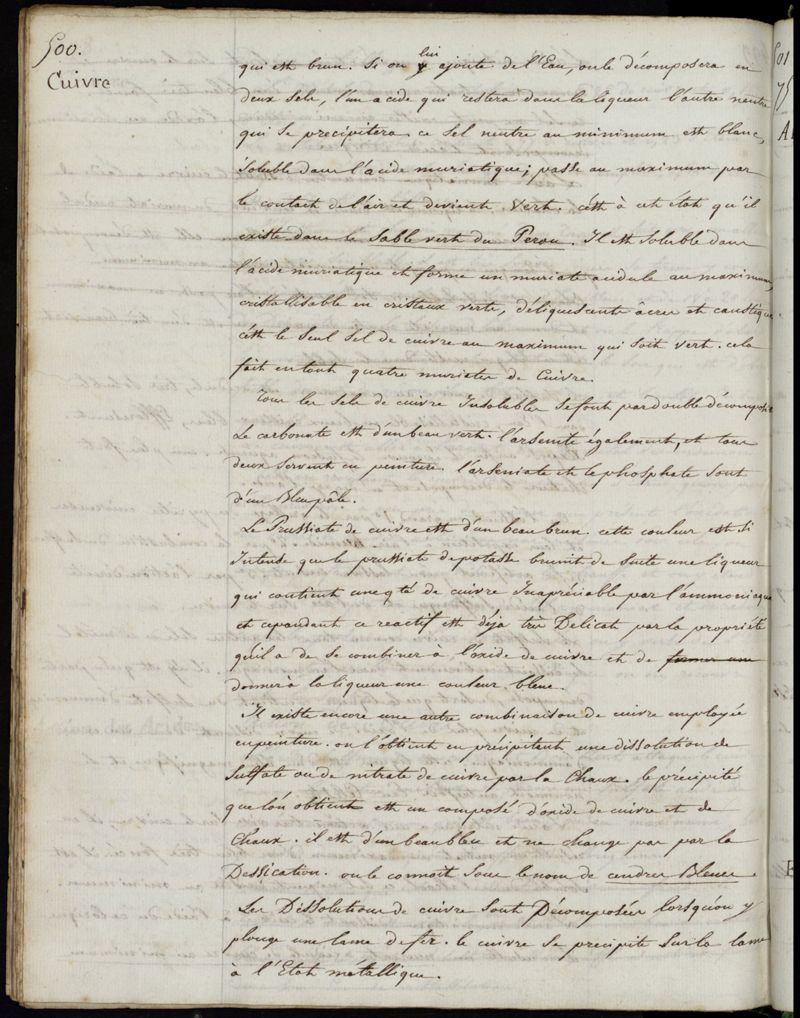 500.
Cuivre
qui est brun. Si on lui y ajoute de l'Eau, on le décomposera en
deux sels, l'un acide qui restera dans la liqueur l'autre neutre
qui Se precipitera ce Sel neutre au minimum est blanc,
Soluble dans l'acide muriatique; passe au maximum par
le contact de l'air et devient Vert. c'est à cet état qu'il
existe dans le Sable vert du Perou. Il est Soluble dans
l'acide muriatique et forme un muriate acidule au maximum,
cristallisable en cristaux verts, déliquescents âcres et caustiques
c'est le Seul Sel de cuivre au maximum qui Soit vert. cela
fait en tout quatre muriates de Cuivre.
Tous les Sels de cuivre Insolubles Se font par double décomposit
Le carbonate est d'un beau vert. l'arsenite également, et tous
deux Servent en peinture. l'arseniate et le phosphate Sont
d'un Bleu pâle.
Le Prussiate de cuivre est d'un beau brun. cette couleur est Si
Intense que le prussiate de potasse brunit de Suite une liqueur
qui contient une qté de cuivre Inapréciable par l'ammoniaque
et cependant ce reactif est déja très Delicat par la propriété
qu'il a de Se combiner à l'oxide de cuivre et de former une
donner à la liqueur une couleur bleue.
Il existe encore une autre combinaison de cuivre employée
en peinture. on l'obtient en précipitant une dissolution de
Sulfate ou de nitrate de cuivre par la Chaux. le précipité
que l'on obtient est un composé d'oxide de cuivre et de
Chaux. il est d'un beau bleu et ne change pas par la
Dessication. on le connoît Sous le nom de cendres Bleues.
Les Dissolutions de cuivre Sont Décomposées lorsqu'on y
plonge une lame de fer. le cuivre Se precipite Sur la lame
à l'Etat métallique.
501